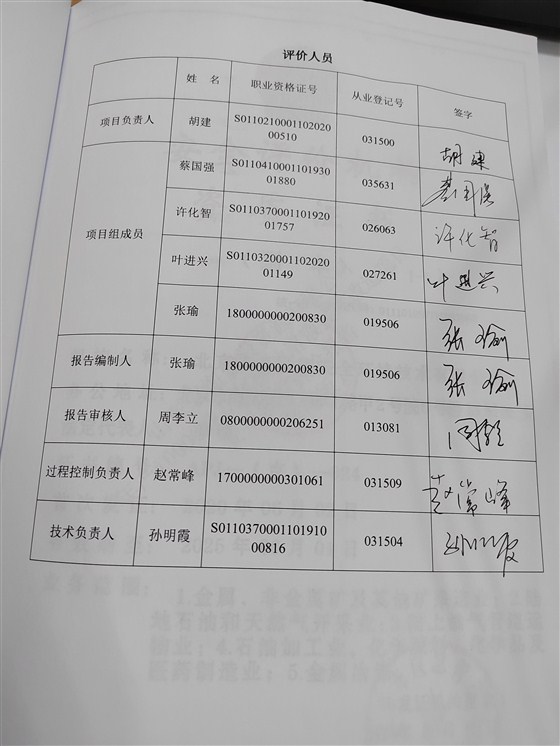 评价人员
姓 名 职业资格证号 从业登记号 签字
项目负责人 胡建 S011021000110202000510 031500 胡建
项目组成员
蔡国强 S011041000110193001880 035631 蔡国强
许化智 S011037000110192001757 026063 许化智
叶进兴 S011032000110202001149 027261 叶进兴
张瑜 1800000000200830 019506 张瑜
报告编制人 张瑜 1800000000200830 019506 张瑜
报告审核人 周李立 0800000000206251 013081
过程控制负责人 赵常峰 1700000000301061 031509 赵常峰
技术负责人 孙明霞 S011037000110191000816 031504